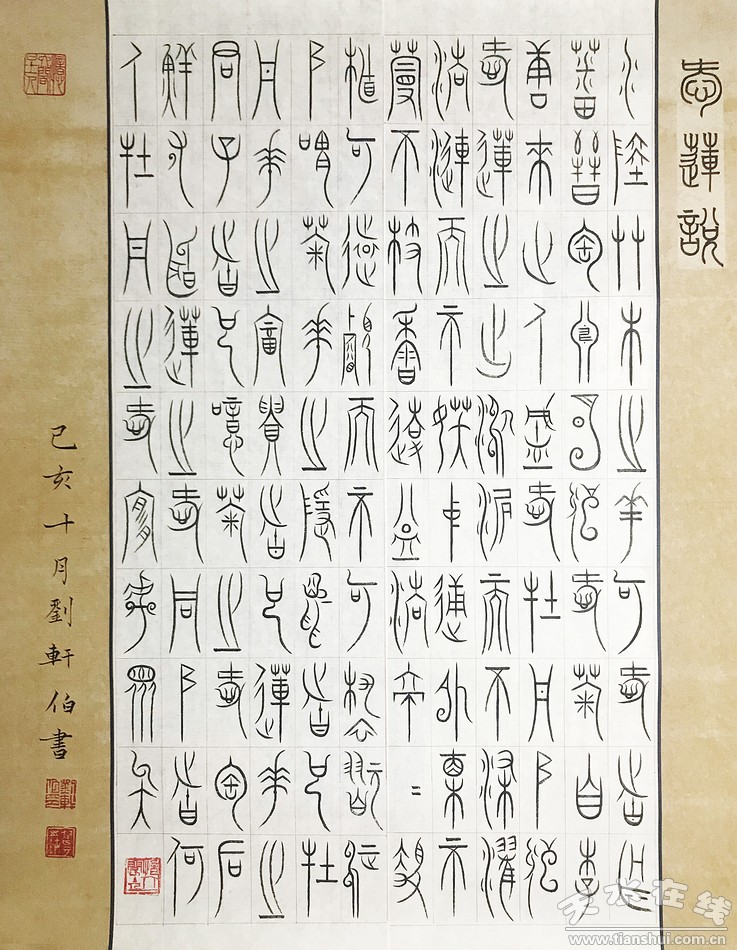 愛蓮說
水陸艸木之華可愛者甚
蕃晉陶淵明獨愛菊自李
唐來世人盛愛牡丹予獨
愛蓮之出淤泥而不染濯
清漣而不妖中通外直不
蔓不枝香遠益清亭=淨
植可遠觀而不可褻翫焉
予謂菊華之隱逸者也牡
丹華之富貴者也蓮華之
君子者也噫菊之愛陶后
鮮有聞蓮之愛同予者何
人牡丹之愛宜乎眾矣
己亥十月劉軒伯書
天水在线
www.tianshui.com.cn